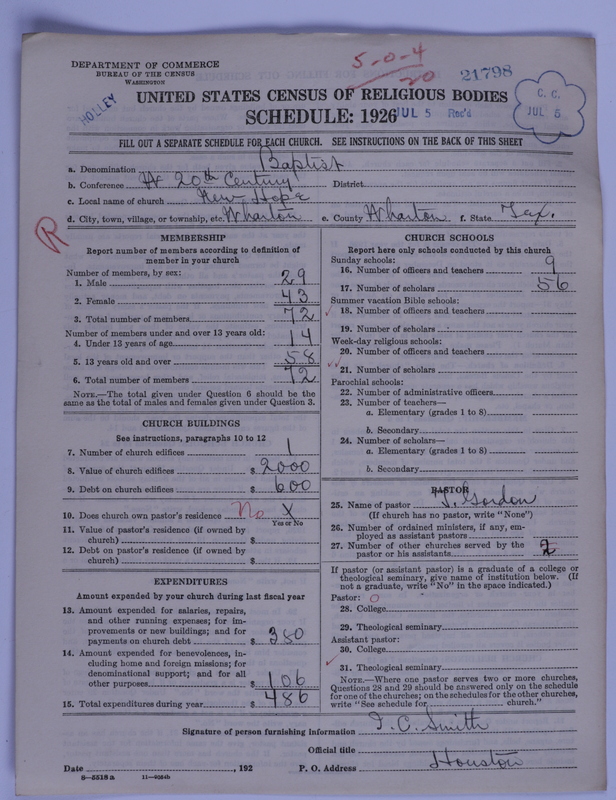 DEPARTMENT OF COMMERCE
BUREAU OF THE CENSUS
WASHINGTON
5-0-4
20
21798
HOLLEY
C. C.
JUL 5
UNITED STATES CENSUS OF RELIGIOUS BODIES
SCHEDULE: 1926
JUL 5 Rec'd
FILL OUT A SEPARATE SCHEDULE FOR EACH CHURCH. SEE INSTRUCTIONS ON THE BACK OF THIS SHEET
a. Denomination Baptist
b. Conference 20th Century District
c. Local name of church New Hope
d. City, town, village, or township, etc. Wharton e. County Wharton f. State Tex.
R
MEMBERSHIP
Report number of members according to definition of
member in your church
Number of members, by sex:
1. Male 29
2. Female 43
3. Total number of members 72
Number of members under and over 13 years old:
4. Under 13 years of age 14
5. 13 years old and over 58
6. Total number of members 72
NOTE.—The total given under Question 6 should be the
same as the total of males and females given under Question 3.
CHURCH BUILDINGS
See instructions, paragraphs 10 to 12
7. Number of church edifices 1
8. Value of church edifices $ 2000
9. Debt on church edifices $ 600
10. Does church own pastor's residence No X
Yes or No
11. Value of pastor's residence (if owned by
church) $
12. Debt on pastor's residence (if owned by
church) $
EXPENDITURES
Amount expended by your church during last fiscal year
13. Amount expended for salaries, repairs,
and other running expenses; for im-
provements or new buildings; and for
payments on church debt $ 380
14. Amount expended for benevolences, in-
cluding home and foreign missions; for
denominational support; and for all
other purposes $ 106
15. Total expenditures during year $ 486
CHURCH SCHOOLS
Report here only schools conducted by this church
Sunday schools:
16. Number of officers and teachers 9
17. Number of scholars 56
Summer vacation Bible schools:
18. Number of officers and teachers
19. Number of scholars
Week-day religious schools:
20. Number of officers and teachers
21. Number of scholars
Parochial schools:
22. Number of administrative officers
23. Number of teachers—
a. Elementary (grades 1 to 8)
b. Secondary
24. Number of scholars—
a. Elementary (grades 1 to 8)
b. Secondary
PASTOR
25. Name of pastor Gordon
(If church has no pastor, write "None")
26. Number of ordained ministers, if any, em-
ployed as assistant pastors
27. Number of other churches served by the
pastor or his assistants 2
If pastor (or assistant pastor) is a graduate of a college or
theological seminary, give name of institution below. (If
not a graduate, write "No" in the space indicated.)
Pastor: O
28. College
29. Theological seminary
Assistant pastor:
30. College
31. Theological seminary
NOTE.—Where one pastor serves two or more churches,
Questions 28 and 29 should be answered only on the schedule
for one of the churches; on the schedules for the other churches,
write "See schedule for church."
Signature of person furnishing information C. Smith
Official title
Date , 192 P. O. Address Houston
8—5518 a 11—9084b